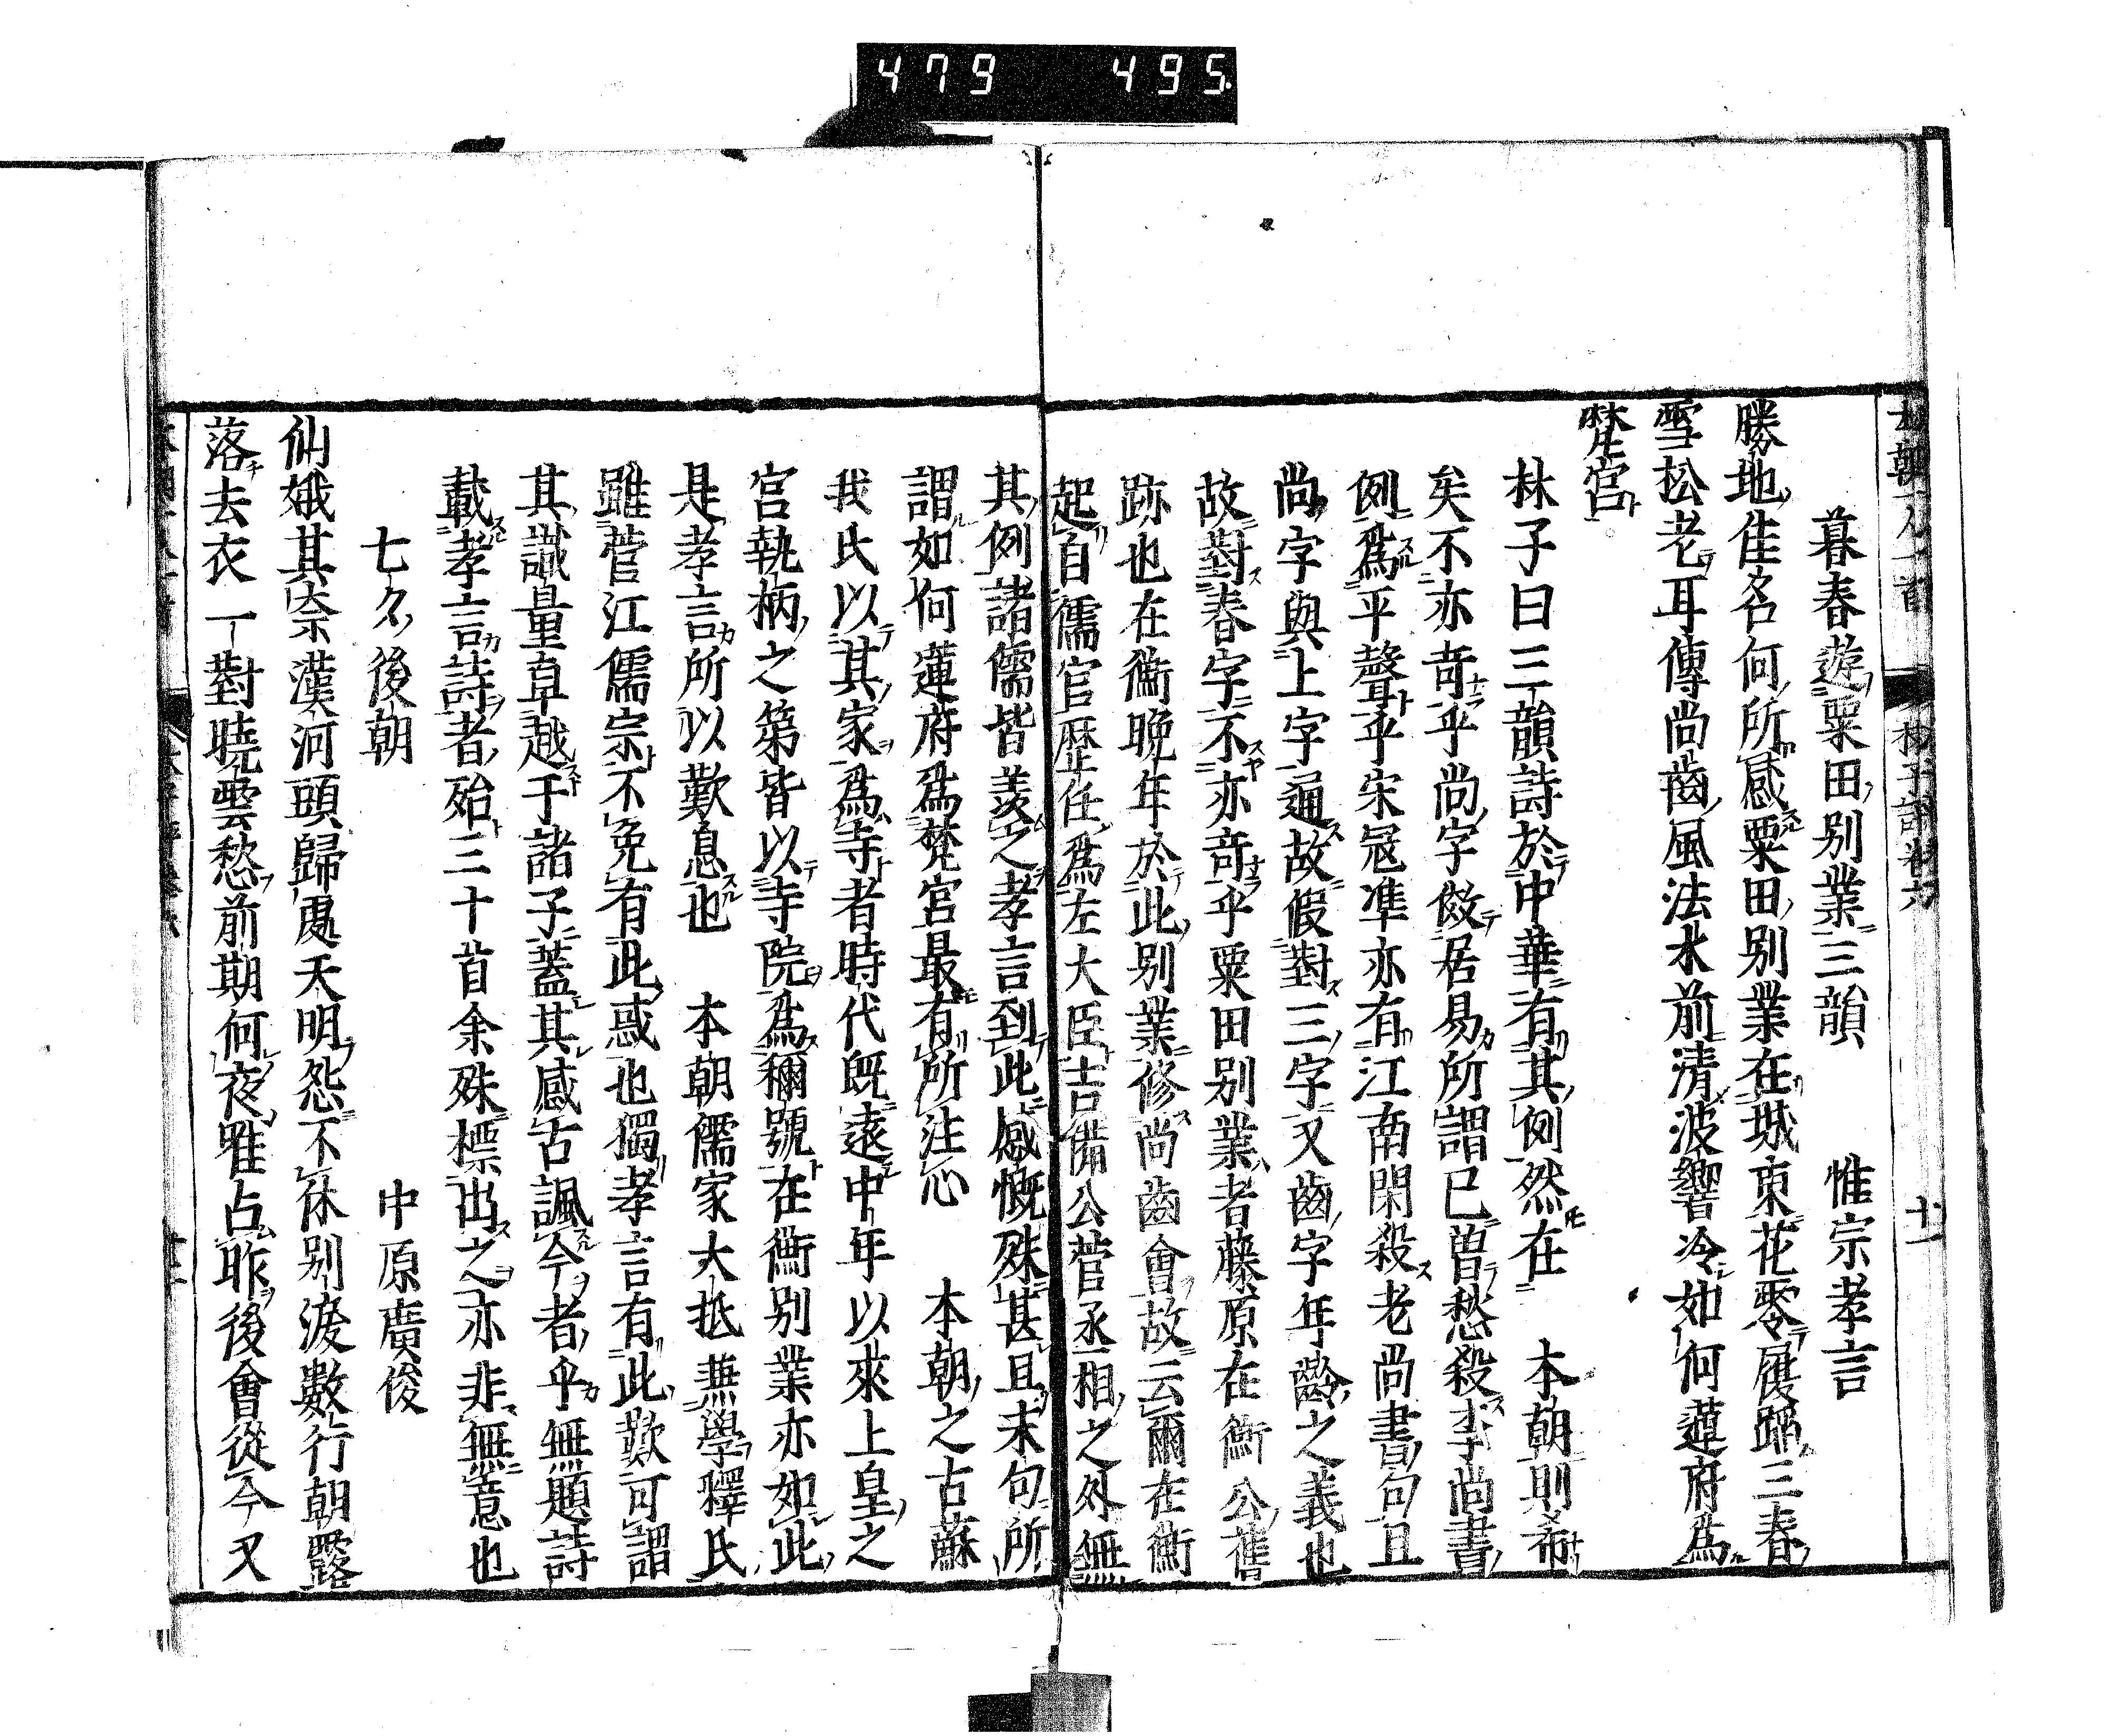 479 495
暮春遊粟田別業三韻 惟宗孝言
勝地佳名何所感粟田別業在城東花零履躡三春
雪松老耳傳尚齒風法水前清波響冷如何蓮府爲
梵宮
林子曰三韻詩於中華有其例然在 本朝則希
矣不亦奇乎尚字傚居易所謂已曽愁殺李尚書
例爲平聲乎宋冦凖亦有江南閑殺老尚書句且
尚字與上字通故假對三字又齒字年齡之義也
故對春字不亦奇乎粟田別業者藤原在衡公舊
跡也在衡晩年於此別業修尚齒會故云爾在衡
起自儒官歴任爲左大臣吉備公菅丞相之外無
其例諸儒皆羨之孝言到此感慨殊甚且末句所
謂如何蓮府爲梵宮最有所注心 本朝之古蘇
我氏以其家爲寺者時代既遠中年以來上皇之
宮執柄之第皆以寺院爲稱號在衡別業亦如此
是孝言所以歎息也 本朝儒家大抵兼學釋氏
雖菅江儒宗不免有此惑也獨孝言有此歎可謂
其識量卓越于諸子蓋其感古諷今者乎無題詩
載孝言詩者殆三十首余殊標出之亦非無意也
七夕後朝 中原廣俊
仙娥其奈漢河頭歸處天明怨不休別涙數行朝露
落去衣一對曉雲愁前期何夜唯占昨後會從今又